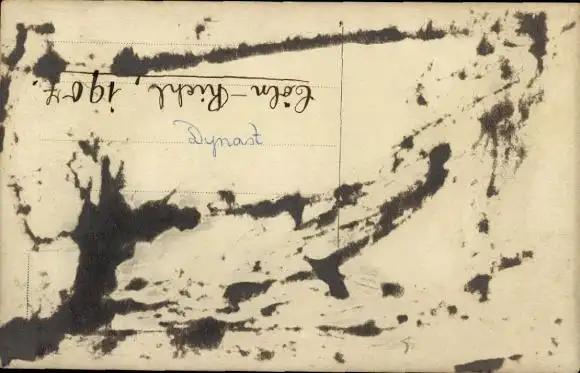 Cöln-Riehl, 1907.
Dynast